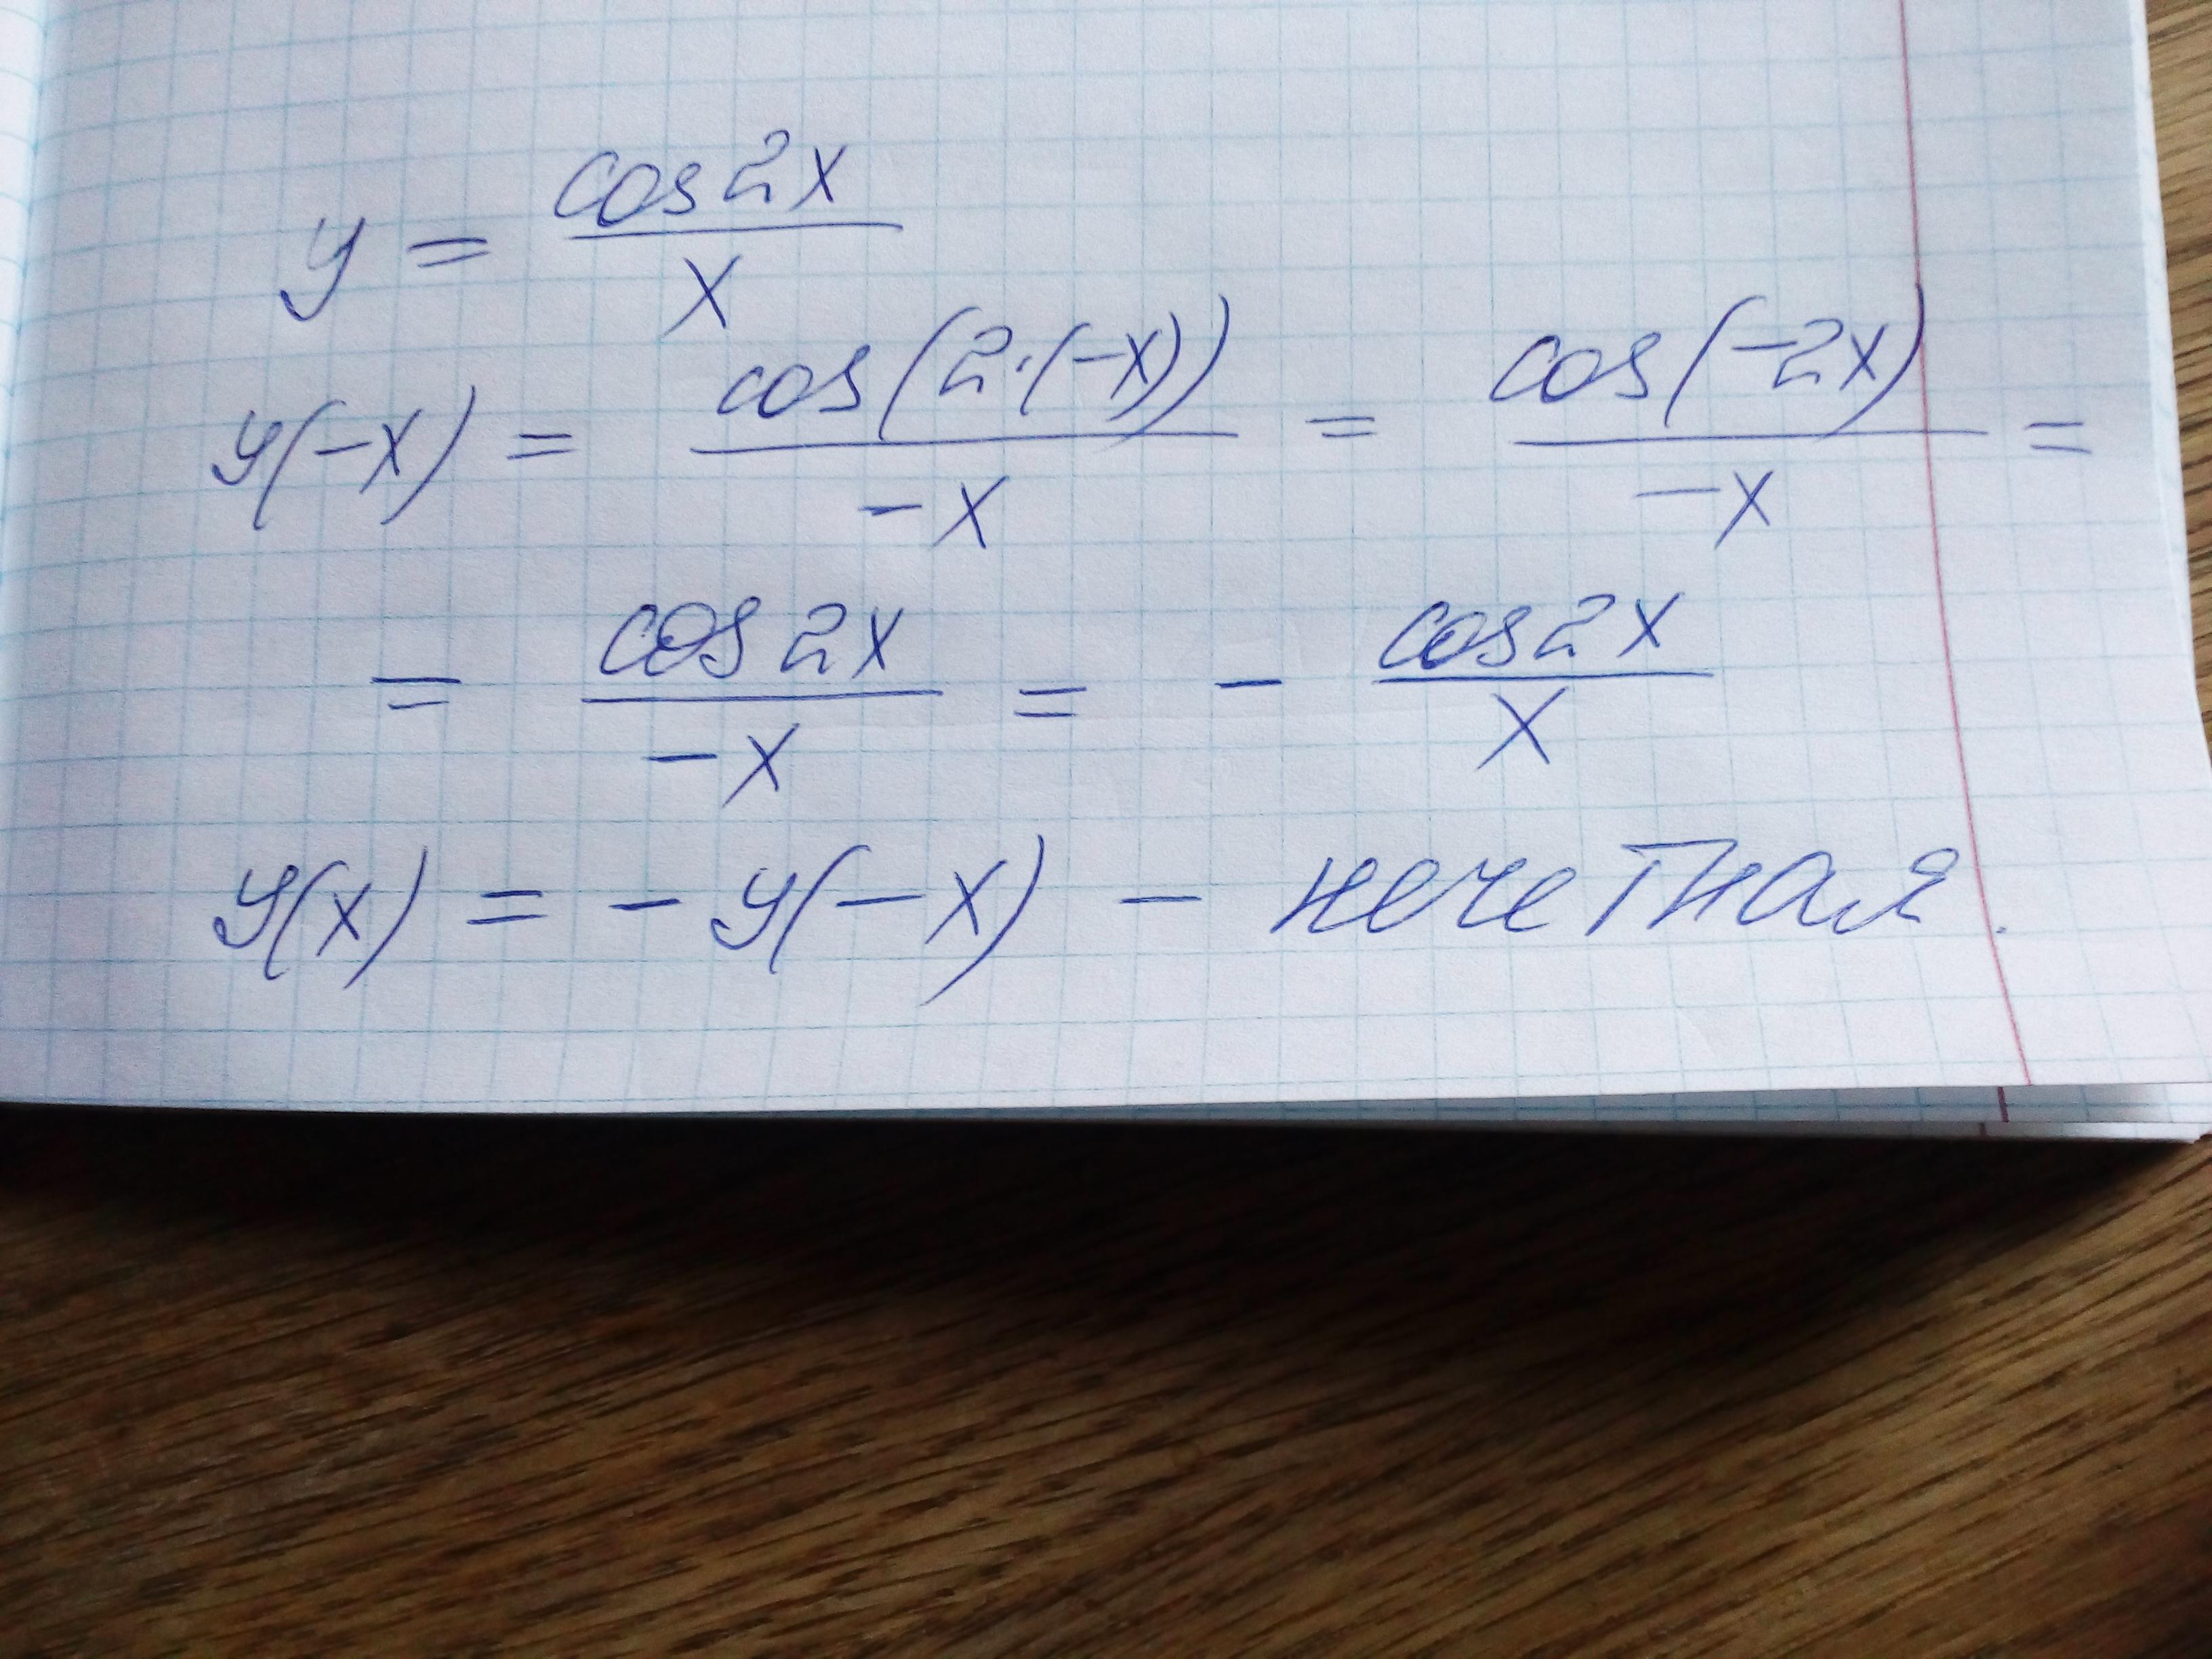 y = cos2x / x
y(-x) = cos(2·(-x)) / -x = cos(-2x) / -x =
= cos2x / -x = - cos2x / x
y(x) = - y(-x) - нечетная.